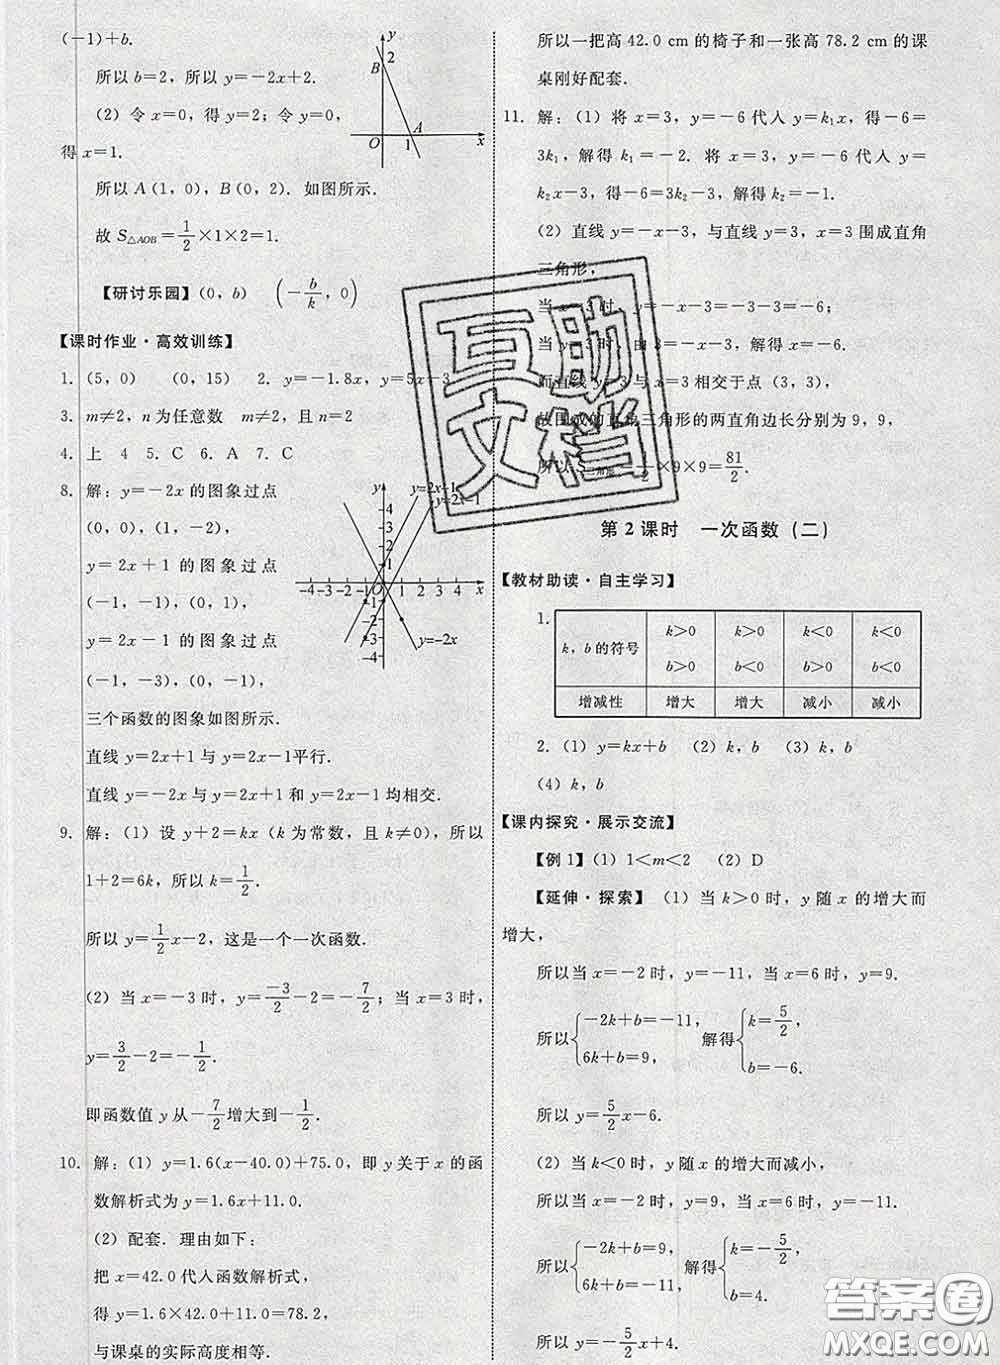 (-1)+b.
所以 b=2，所以 y=-2x+2.
(2) 令 x=0，得 y=2；令 y=0，
得 x=1.
所以 A(1，0)，B(0，2). 如图所示.
故 S△AOB=1/2×1×2=1.
y
2
B
O
1
A
x
【研讨乐园】(0，b)　(-b/k，0)
【课时作业·高效训练】
1. (5，0)　(0，15)　2. y=-1.8x，y=5x-3
3. m≠2，n 为任意数　m≠2，且 n=2
4. 上　4　5. C　6. A　7. C
8. 解：y=-2x 的图象过点
(0，0)，(1，-2)，
y=2x+1 的图象过点
(-1，-1)，(0，1)，
y=2x-1 的图象过点
(-1，-3)，(0，-1)，
三个函数的图象如图所示.
直线 y=2x+1 与 y=2x-1 平行.
直线 y=-2x 与 y=2x+1 和 y=2x-1 均相交.
y
y=2x-1
4
3
2
1
-4 -3 -2 -1 O 1 2 3 4 x
-1
-2
-3
-4
y=-2x
9. 解：(1) 设 y+2=kx（k 为常数，且 k≠0），所以
1+2=6k，所以 k=1/2.
所以 y=1/2x-2，这是一个一次函数.
(2) 当 x=-3 时，y=-3/2-2=-7/2；当 x=3 时，
y=3/2-2=-1/2.
即函数值 y 从-7/2增大到-1/2.
10. 解：(1) y=1.6(x-40.0)+75.0，即 y 关于 x 的函
数解析式为 y=1.6x+11.0.
(2) 配套. 理由如下：
把 x=42.0 代入函数解析式，
得 y=1.6×42.0+11.0=78.2，
与课桌的实际高度相等.
所以一把高 42.0 cm 的椅子和一张高 78.2 cm 的课
桌刚好配套.
11. 解：(1) 将 x=3，y=-6 代入 y=k₁x，得-6=
3k₁，解得 k₁=-2. 将 x=3，y=-6 代入 y=
k₂x-3，得-6=3k₂-3，解得 k₂=-1.
(2) 直线 y=-x-3，与直线 y=3，x=3 围成直角
三角形，
当 x=3 时，y=-x-3=-3-3=-6；
当 y=3 时，由 3=-x-3，解得 x=-6.
而直线 y=3 与 x=3 相交于点 (3，3)，
故围成的直角三角形的两直角边长分别为 9，9，
所以 S三角形=1/2×9×9=81/2.
互助
文档
第 2 课时　一次函数（二）
【教材助读·自主学习】
1.
k，b 的符号　k>0 b>0　k>0 b<0　k<0 b>0　k<0 b<0
增减性　增大　增大　减小　减小
2. (1) y=kx+b　(2) k，b　(3) k，b
(4) k，b
【课内探究·展示交流】
【例 1】(1) 1<m<2　(2) D
【延伸·探索】(1) 当 k>0 时，y 随 x 的增大而
增大，
所以当 x=-2 时，y=-11，当 x=6 时，y=9.
所以{-2k+b=-11，6k+b=9，解得{k=5/2，b=-6.
所以 y=5/2x-6.
(2) 当 k<0 时，y随 x 的增大而减小，
所以当 x=-2 时，y=9，当 x=6 时，y=-11.
所以{-2k+b=9，6k+b=-11，解得{k=-5/2，b=4.
所以 y=-5/2x+4.
答案圈
MXQE.COM